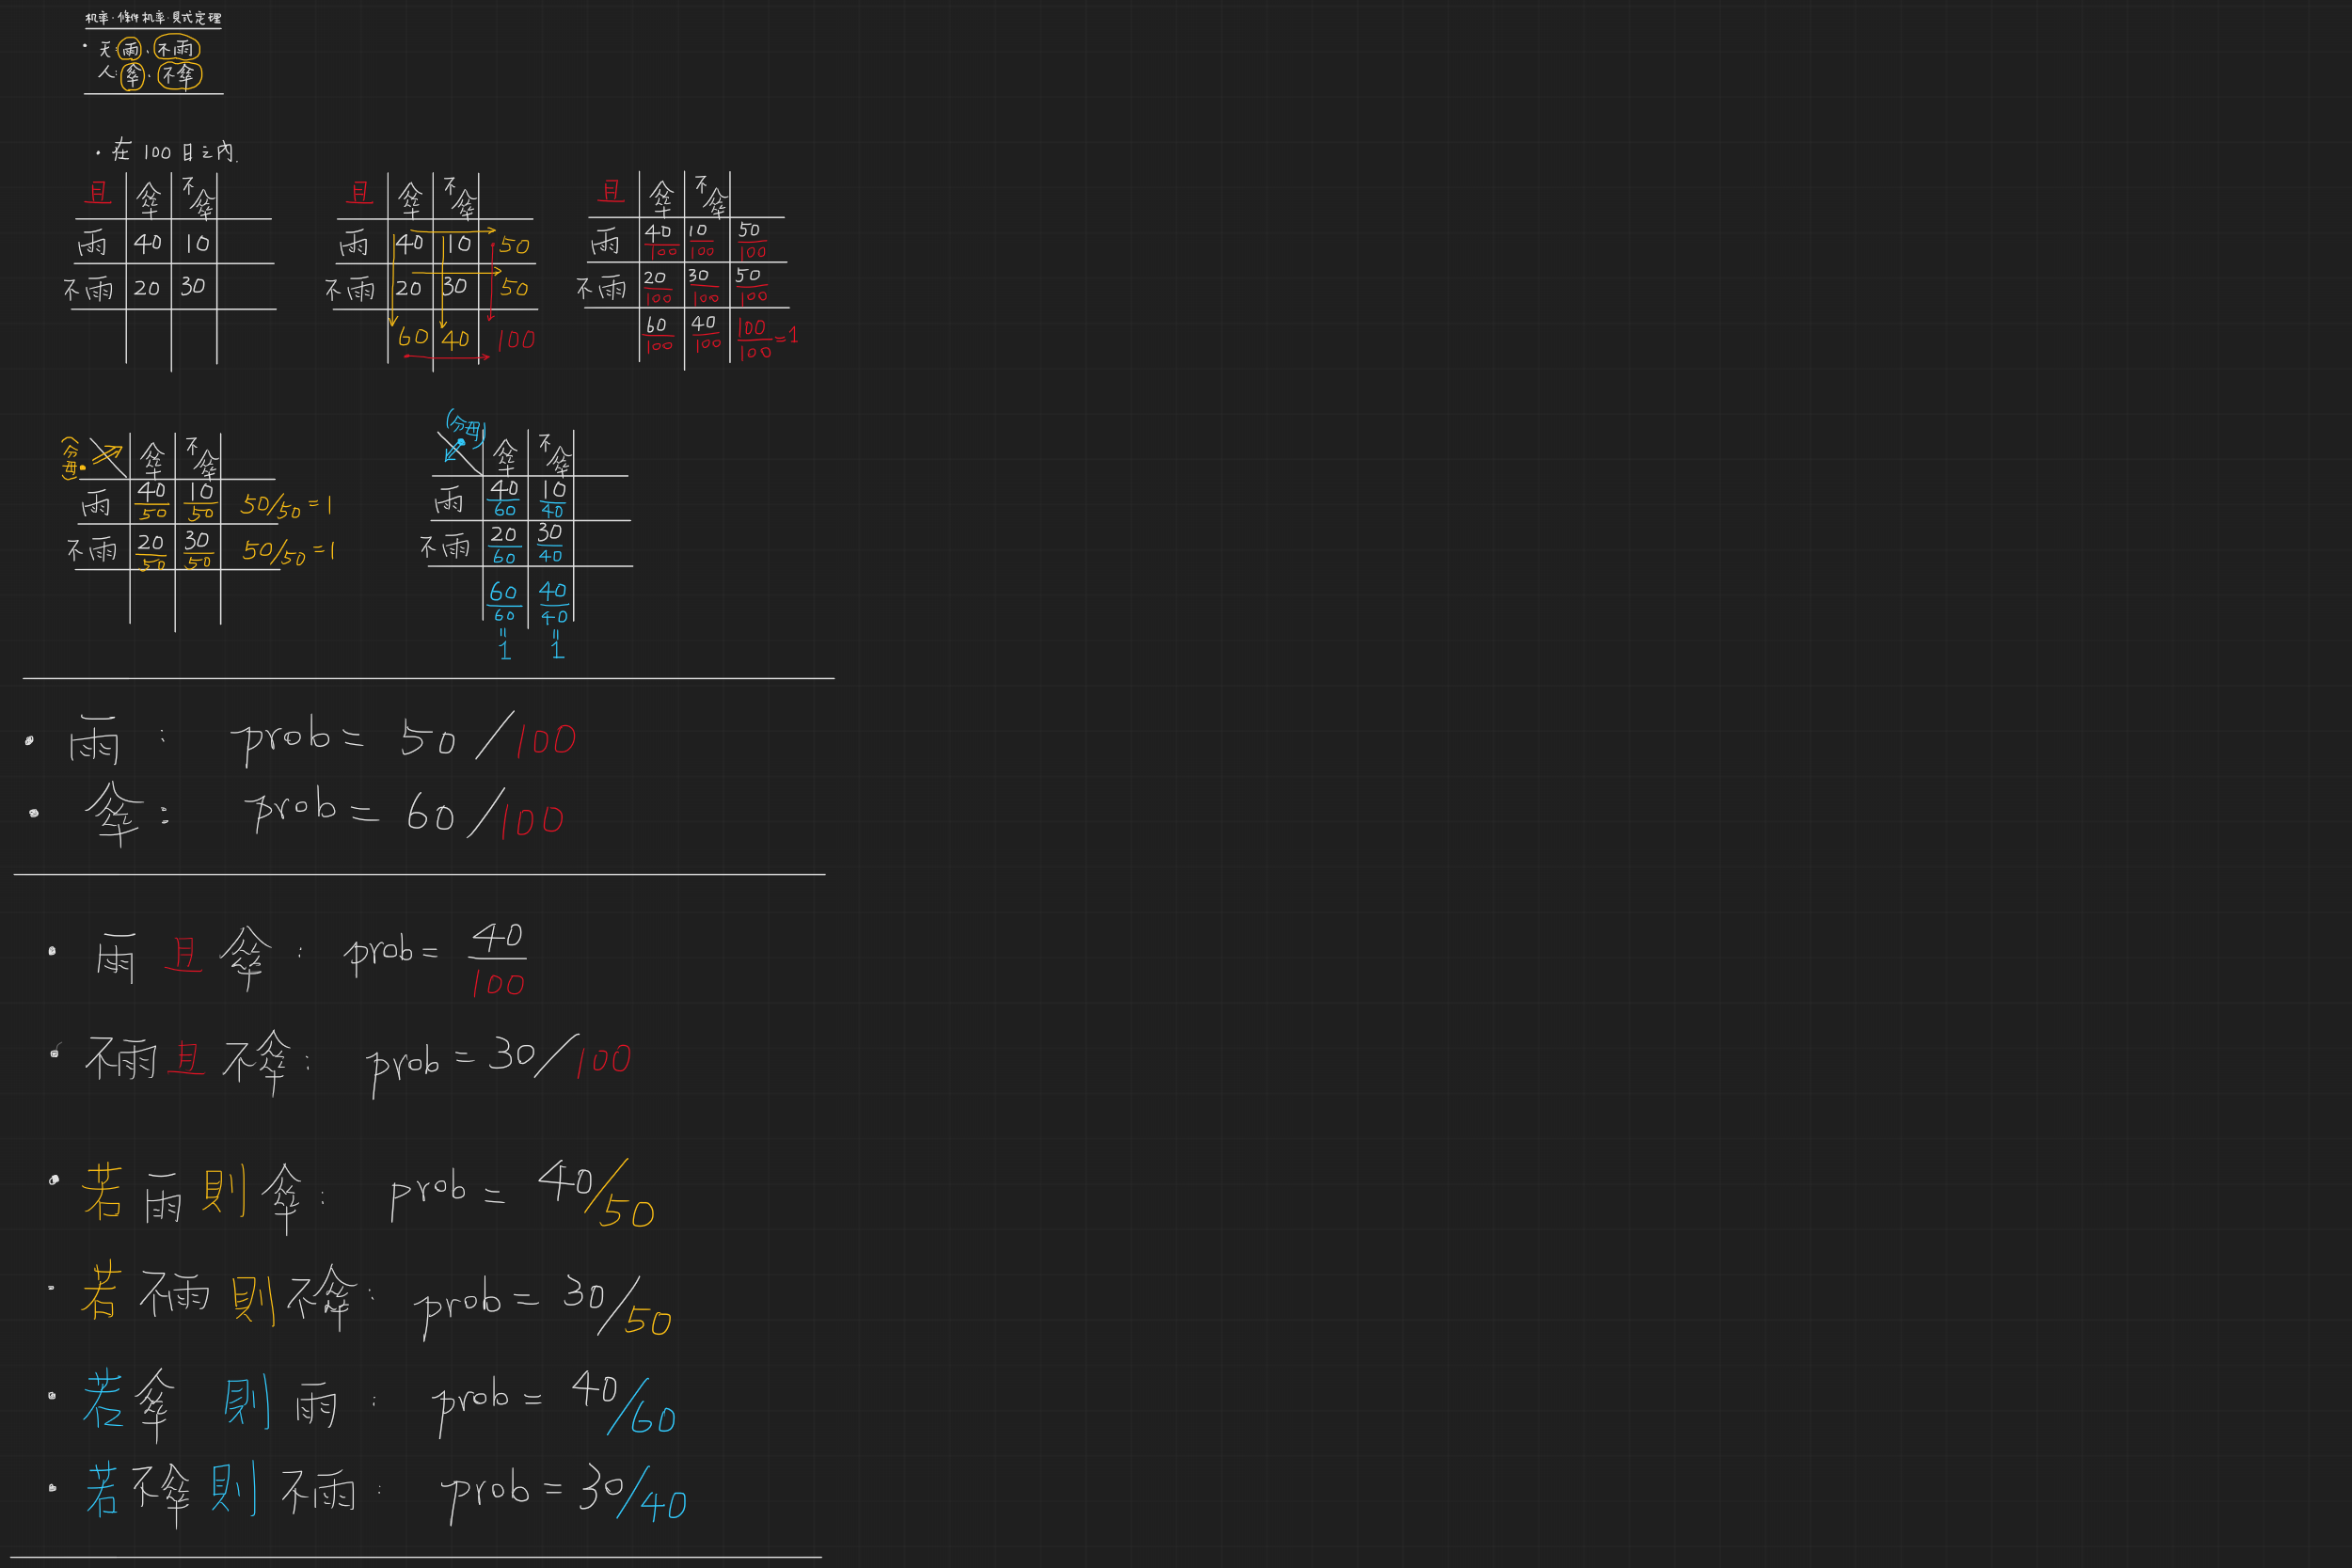 机率·條件机率·貝式定理
· 天:雨、不雨
人:傘、不傘
· 在 100 日之內.
且 傘 不傘
雨 40 10
不雨 20 30
且 傘 不傘
雨 40 10 50
不雨 20 30 50
60 40 100
且 傘 不傘
雨 40/100 10/100 50/100
不雨 20/100 30/100 50/100
60/100 40/100 100/100=1
(分母) 傘 不傘
雨 40/50 10/50 50/50=1
不雨 20/50 30/50 50/50=1
(分母) 傘 不傘
雨 40/60 10/40
不雨 20/60 30/40
60/60 40/40
= =
1 1
· 雨: prob= 50/100
· 傘: prob= 60/100
· 雨且傘: prob= 40/100
· 不雨且不傘: prob=30/100
· 若雨則傘: prob= 40/50
· 若不雨則不傘: prob= 30/50
· 若傘則雨: prob= 40/60
· 若不傘則不雨: prob=30/40